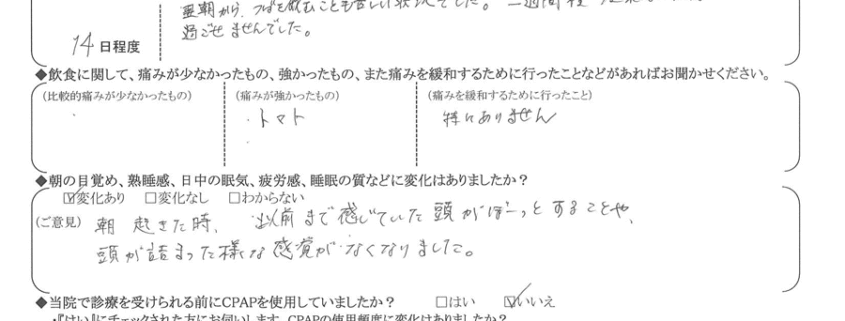 翌朝から、つばを飲むことも苦しい状況でした。二週間程
過ごせませんでした。
14日程度
◆飲食に関して、痛みが少なかったもの、強かったもの、また痛みを緩和するために行ったことなどがあればお聞かせください。
(比較的痛みが少なかったもの) (痛みが強かったもの) (痛みを緩和するために行ったこと)
・ ・トマト 特にありません
・
◆朝の目覚め、熟睡感、日中の眠気、疲労感、睡眠の質などに変化はありましたか?
☑変化あり □変化なし □わからない
(ご意見) 朝 起きた時、以前まで感じていた頭がぼーっとすることや、
頭が詰まった様な感覚が、なくなりました。
◆当院で診療を受けられる前にCPAPを使用していましたか? □はい ☑いいえ
・『はい』にチェックされた方にお伺いします。CPAPの使用頻度に変化はありましたか?